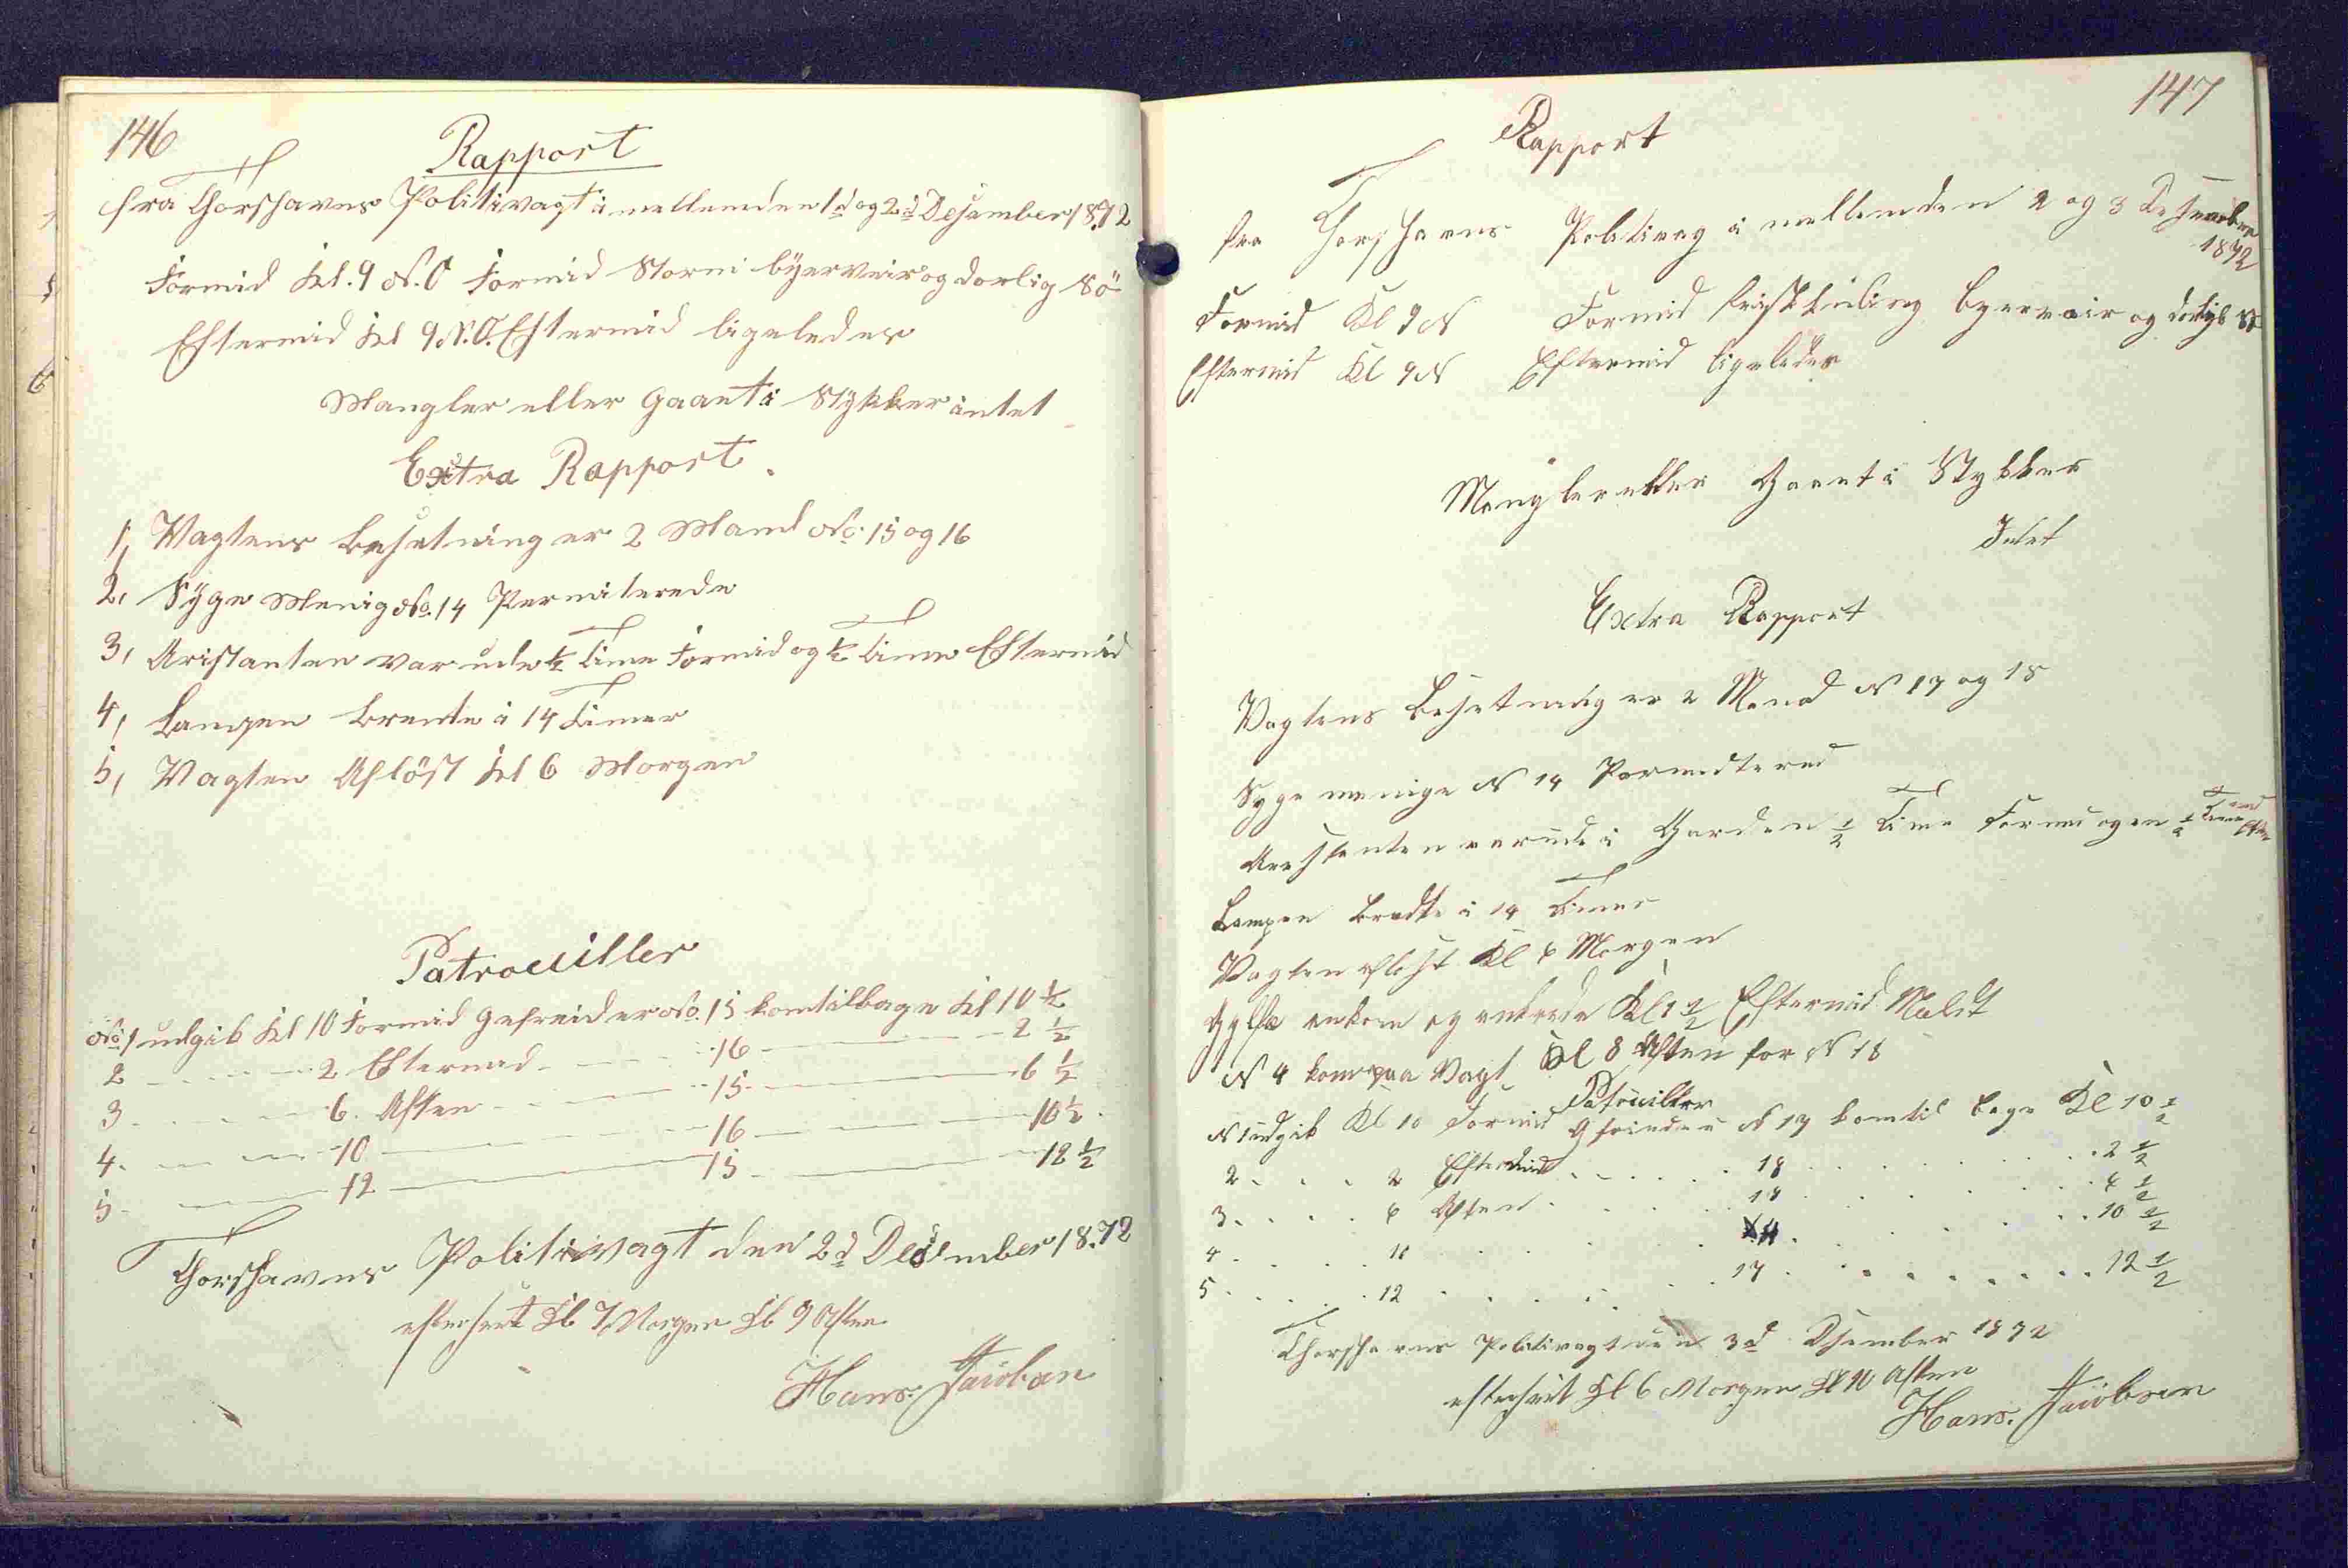 146
Rapport
fra Thorshavns Politivagt i mellem den 1d og 2d Desember 18.72
Formid Kl. 9 N. O Formid Storm byerveir og dorlig Sö
Eftermid Kl 9 N. O. Eftermid ligeledes
Mangler eller gaaet i Stykker intet
Extra Rapport.
1, Vagtens Besetning er 2 Mand No. 15 og 16
2, Syge Menig No. 14 Permiterede
3, Aristanten var ude ½ Time Formid og ½ Time Eftermid
4, Lampen brente i 14 Timer
5, Vagten Aflöst Kl 6 Morgen
Patrouiller
No. 1 udgik Kl 10 Formid Gefreider No. 15 kom tilbage Kl 10 ½
2 2 Eftermid 16 2 ½
3 6. Aften 15 6 ½
4. 10 16 10 ½
5 12 15 12 ½
Thorshavns Politivagt den 2d Desember 18.72
efterseet Kl 7 Morgen Kl 9 Aften
Hans. Jacobsen
147
Rapport
fra Thorshavns Politivag i mellem den 2 og 3 Desember
1872
Formid Kl 9 N Formid frisk kuling byerveir og
Eftermid Kl 9 N Eftermid ligeledes
Mangler eller Gaaet i Stykker
Intet
Extra Rapport
Vagtens Besetning er 2 Mand N 17 og 18
Syge menige N 14 Parmedtered
Arestanten var ude i Garden ½ Time Formid og en ½ Time
Lampen bredte i 14 Timer
Vagten aflöst Kl 6 Morgen
ankom og ankrede Kl 1 ½ Eftermid Meldt
N 4 kom paa Vagt Kl 8 Aften for N 18
Patruiller
N 1 udgik Kl 10 Formid Gfreider N 17 kom til bage Kl 10 ½
2 2 Eftermid 18 2 ½
3 6 Aften 17 6 ½
4 10 4 10 ½
5 12 17 12 ½
Thorshavns Politivagt den 3d Dsember 1872
efterseet Kl 6 Morgen Kl 10 Aften
Hans. Jacobsen